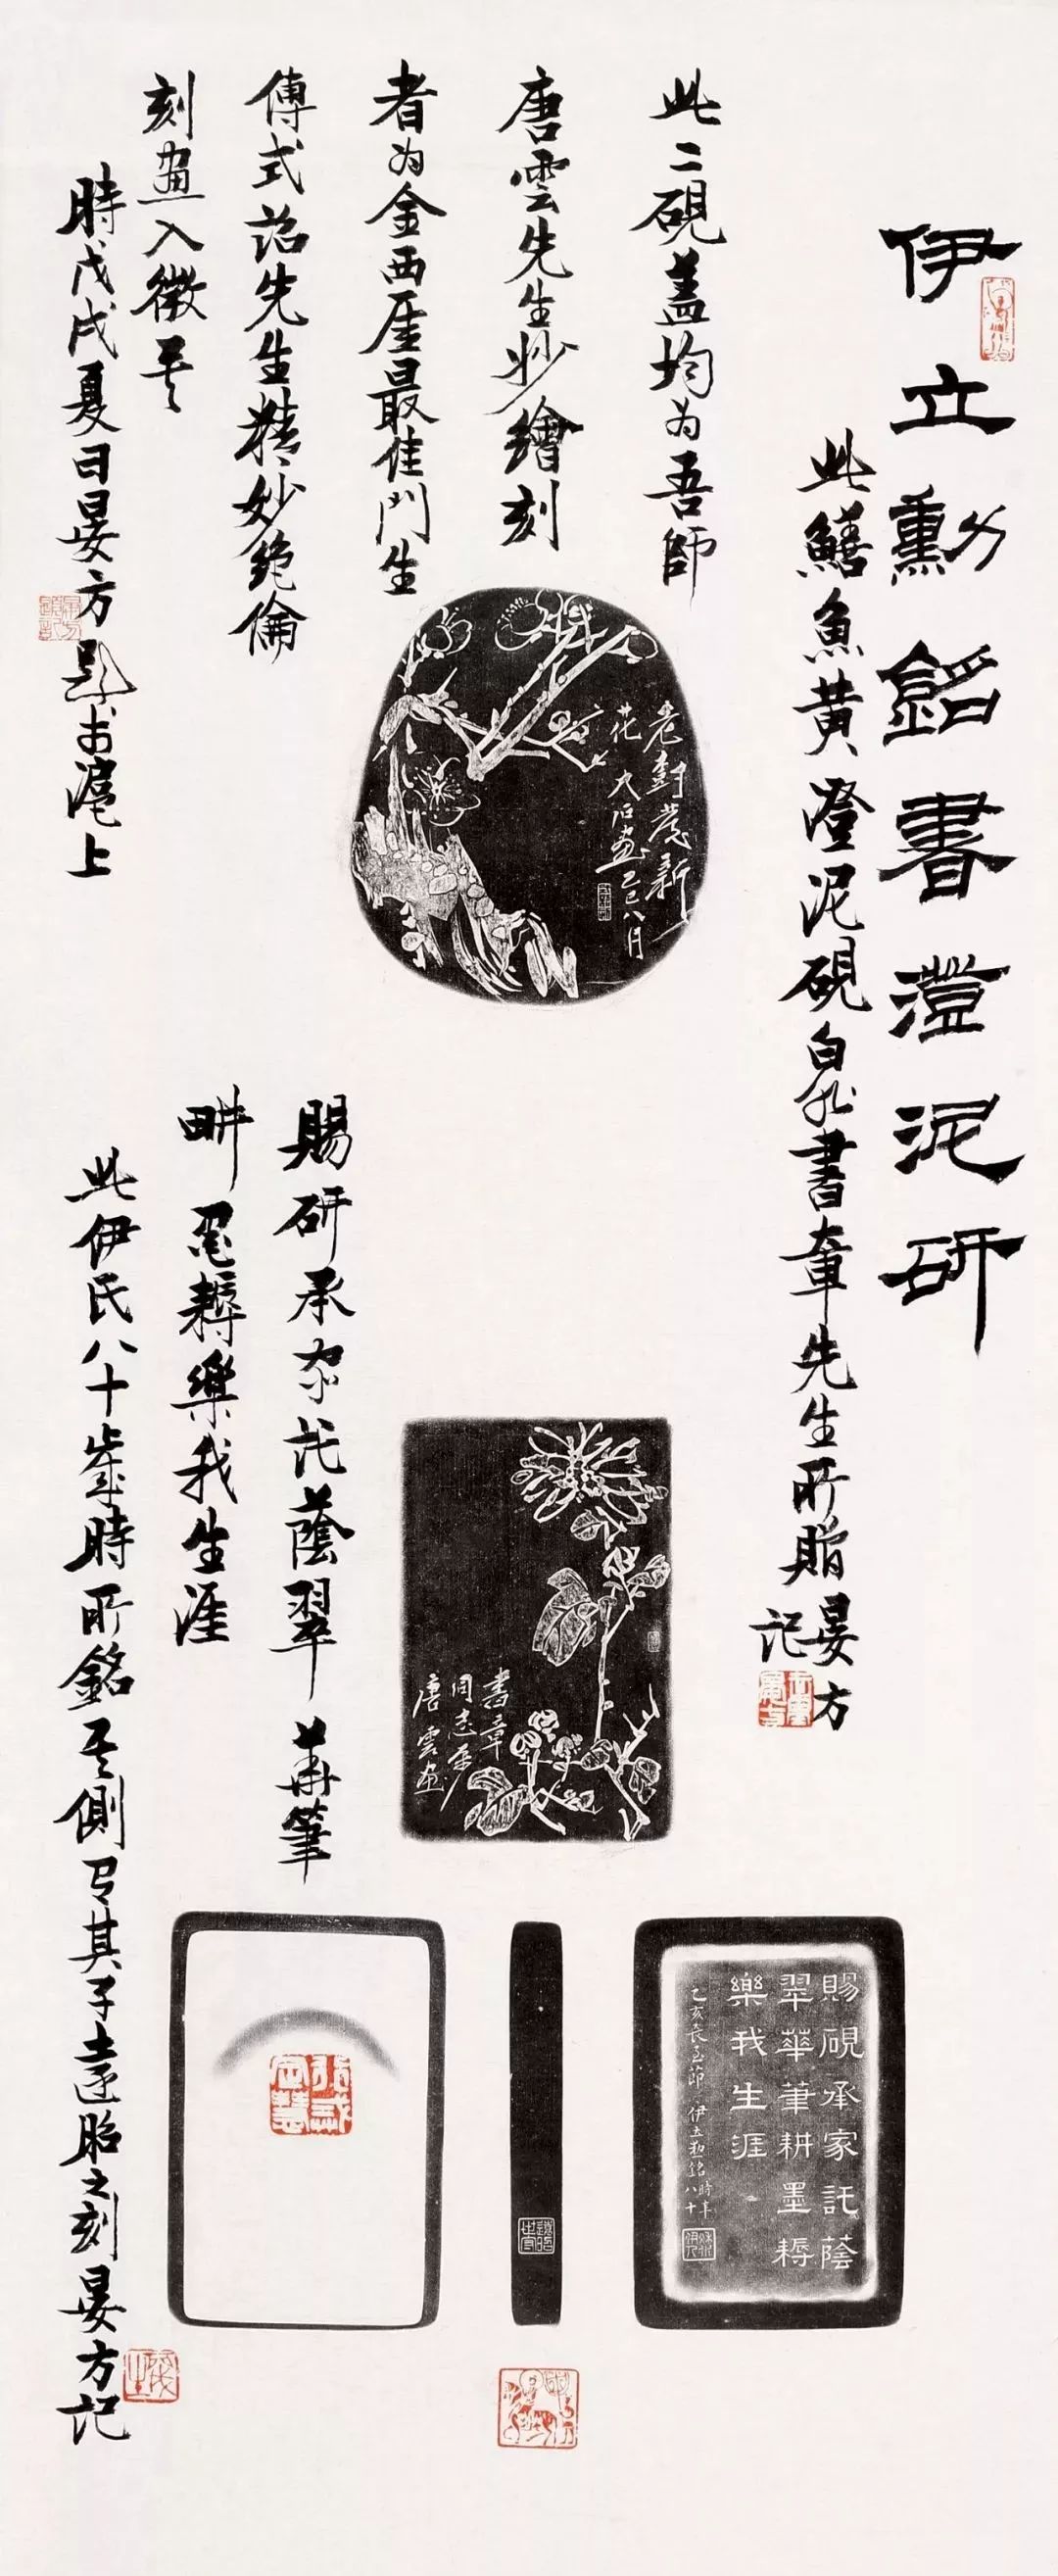 伊立勳銘書澄泥研
此鱔魚黃澄泥硯白書章先生所貽晏方
記
此二硯蓋均为吾師
唐雲先生妙繪刻
者为金西厓最佳門生
傅式詔先生精妙絶倫
刻画入微
時戊戌夏日晏方題於滬上
老樹著新
花大石畫乙巳八月
賜研承家託蔭翠華筆
畊墨耨樂我生涯
此伊氏八十歲時所銘其側有其子遠昭之刻晏方記
書章
同志屬
唐雲画
賜硯承家託蔭
翠華筆耕墨耨
樂我生涯
乙亥長至節伊立勳銘時年八十